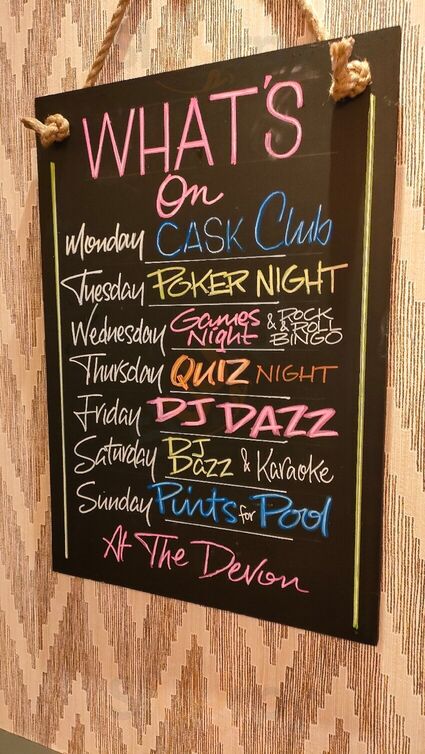 WHAT'S
On
Monday CASK Club
Tuesday POKER NIGHT
Wednesday Games Night & ROCK & ROLL BINGO
Thursday QUIZ NIGHT
Friday DJ DAZZ
Saturday DJ Dazz & Karaoke
Sunday Pints for Pool
At The Devon